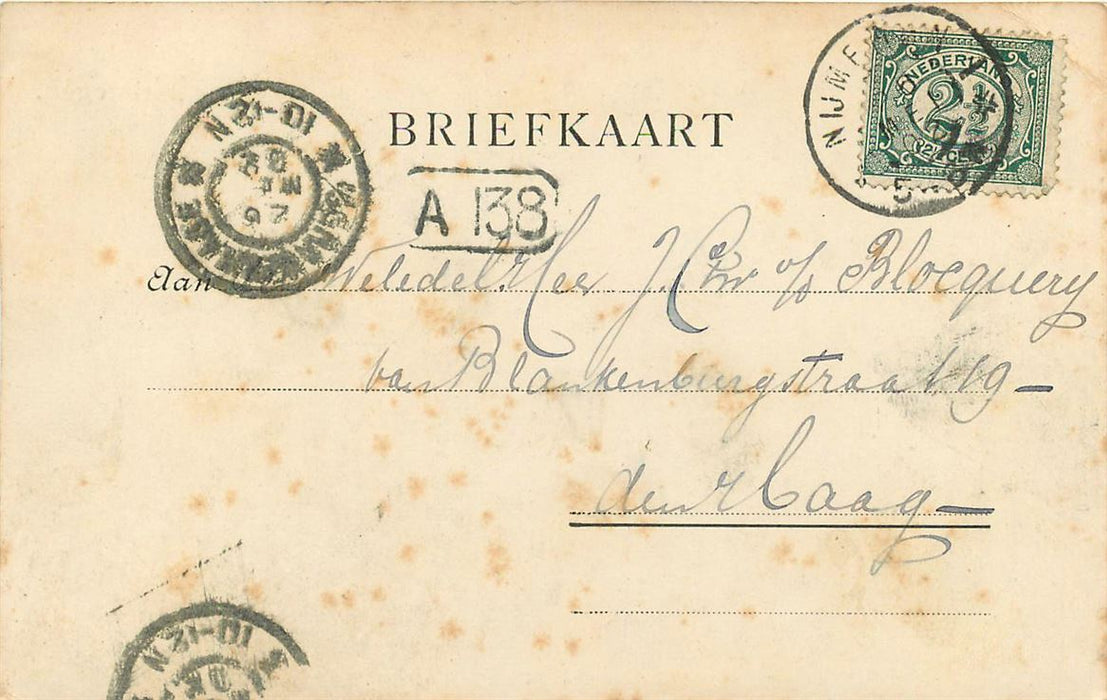 BRIEFKAART
NEDERLAND
2½
NIJMEGEN
10-12N
'S-GRAVENHAGE
A 138
Aan Weledel. Heer J. C. v/o Blocquery
van Blankenburgstraat 19 —
den Haag —
10-12N